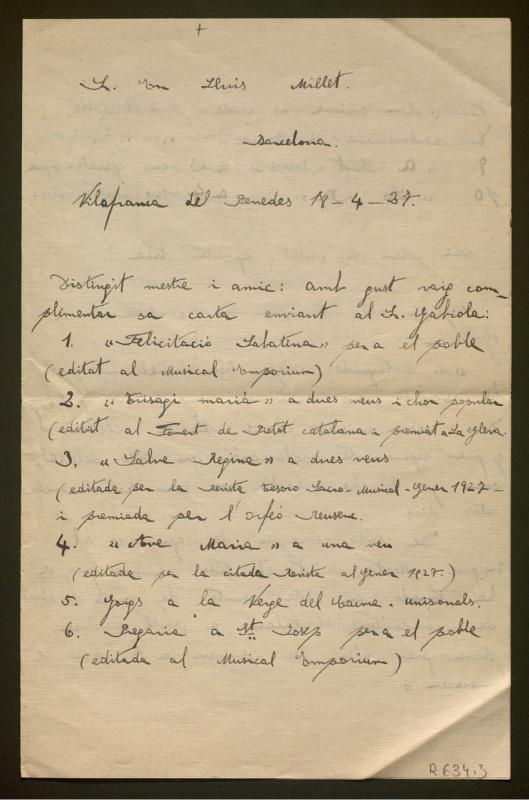 +
Sr. En Lluis Millet.
Barcelona.
Vilafranca del Penedes 18-4-27.
Distingit mestre i amic: amb gust vaig com-
plimentar sa carta enviant al Sr. Gabiola:
1. "Felicitació Sabatina" per a el poble
(editat al Musical Emporium)
2. "Trisagi marià" a dues veus i chor popular
(editat al Foment de Pietat catalana i premiat a La Yleva.
3. "Salve Regina" a dues veus
(editada per la Revista Tesoro Sacro-Musical-Gener 1927-
i premiada per l'orfeó Reusenc.
4. "Ave Maria" a una veu
(editada per la citada Revista al Gener 1927.)
5. Goigs a la Verge del Carme. Unisonals.
6. Pregaria a St Josep per a el poble
(editada al Musical Emporium)
R 634.3